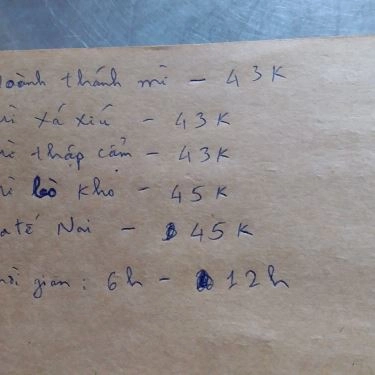 oành thánh mì - 43K
ì xá xíu - 43K
ì thập cẩm - 43K
ì bò khọ - 45K
a tế Nai - 45K
ời gian: 6h - 12h